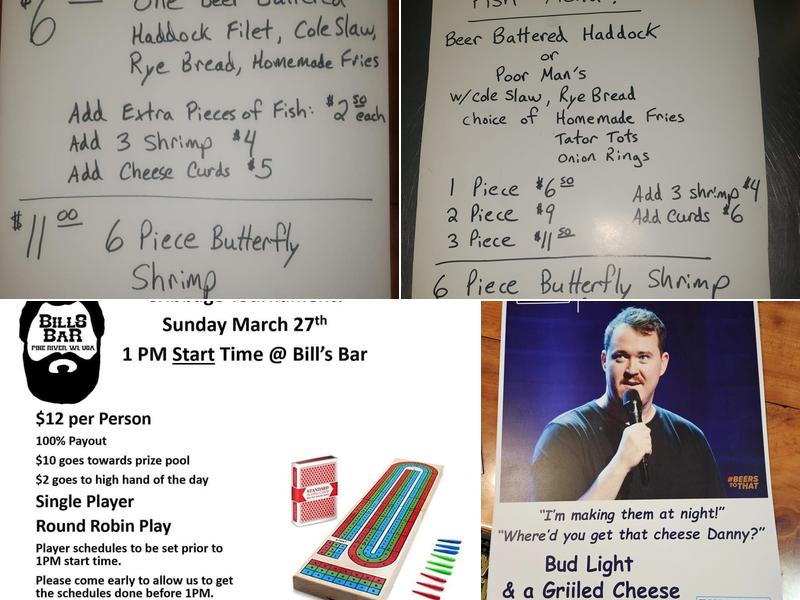 $6
One Beer Battered
Haddock Filet, Cole Slaw,
Rye Bread, Homemade Fries
Add Extra Pieces of Fish: $2 50 each
Add 3 Shrimp $4
Add Cheese Curds $5
$11 00 6 Piece Butterfly
Shrimp
Fish Menu:
Beer Battered Haddock
or
Poor Man's
w/cole Slaw, Rye Bread
choice of Homemade Fries
Tator Tots
Onion Rings
1 Piece $6 50
2 Piece $9
3 Piece $11 50
Add 3 shrimp $4
Add Curds $6
6 Piece Butterfly Shrimp
BILLS
BAR
PINE RIVER, WI, USA
Cribbage Tournament!
Sunday March 27th
1 PM Start Time @ Bill's Bar
$12 per Person
100% Payout
$10 goes towards prize pool
$2 goes to high hand of the day
Single Player
Round Robin Play
Player schedules to be set prior to
1PM start time.
Please come early to allow us to get
the schedules done before 1PM.
STANDARD
#BEERS
TO THAT
"I'm making them at night!"
"Where'd you get that cheese Danny?"
Bud Light
& a Griiled Cheese